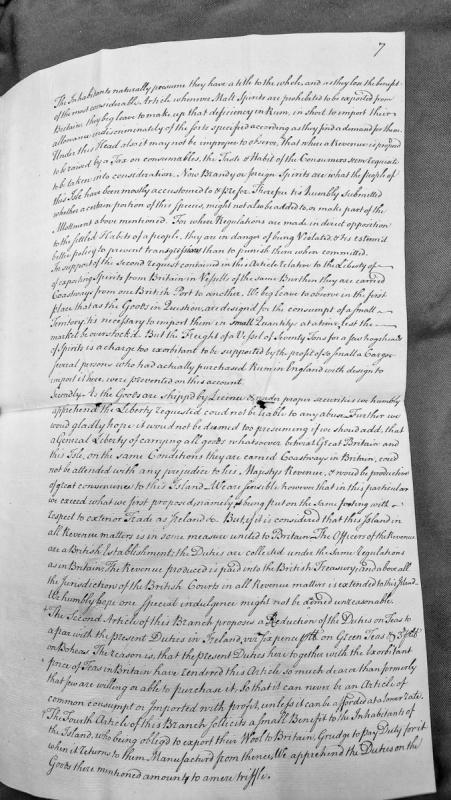 7
The Inhabitants naturally presume they have a title to the whole, and as they lose the benefit
of the most considerable Article whenever Malt Spirits are prohibited to be exported from
Britain they beg leave to make up that deficiency in Rum, in short to import their
allowance indiscriminately of the sorts specified according as they find a demand for them.
Under this Head also it may not be improper to observe, that where a Revenue is proposed
to be raised by a Tax on consumables, the Taste & Habit of the Consumers seem requisite
to be taken into consideration. Now Brandy or foreign Spirits are what the people of
this Isle have been mostly accustomed to & prefer. Therefore tis humbly Submitted
whether a certain portion of this Species, might not also be added to, or make part of the
Allotment above mentioned. For where Regulations are made in direct opposition
to the settled Habits of a people, they are in danger of being Violated, & tis esteem'd
better policy to prevent transgressions than to punish them when committed.
In support of the Second request contained in this Article relative to the Liberty of
of exporting Spirits from Britain in Vessells of the same Burthen they are carried
Coastways from one British Port to another. We beg leave to observe in the first
place that as the Goods in Question, are designed for the consumpt of a small
Territory, tis necessary to import them in Small Quantitys at a time, lest the
market be overstock'd. But the Freight of a Vessel of Seventy Tons for a few hogsheads
of Spirits is a charge too exorbitant to be supported by the profit of so small a Cargo
several persons who had actually purchased Rum in England with design to
import it here, were prevented on this account.
Secondly. As the Goods are shipp'd by Licence & under proper securities we humbly
apprehend the Liberty requested could not be liable to any abuse. Further we
would gladly hope it would not be deemed too presuming if we should add, that
a General Liberty of carrying all goods whatsoever between Great Britain and
this Isle, on the same Conditions they are carried Coastways in Britain, could
not be attended with any prejudice to his Majestys Revenue, & would be productive
of great convenience to this Island. We are sensible however that in this particular
we exceed what we first proposed namely being put on the same footing with
respect to exterior Trade as Ireland &c. But if it is considered that this Island in
all Revenue matters is in some measure united to Britain. The Officers of the Revenue
are a British Establishment; the Duties are collected under the same Regulations
as in Britain; The Revenue produced is paid into the British Treasury; and above all
the Jurisdiction of the British Courts in all Revenue matters is extended to this Island.
We humbly hope one special indulgence might not be deemed unreasonable.
The Second Article of this Branch proposes a Reduction of the Duties on Teas to
a par with the present Duties in Ireland, viz. Six pence on Green Teas &
on Boheas. The reason is, that the present Duties here together with the exorbitant
price of Teas in Britain have rendered this Article so much dearer than formerly
that few are willing or able to purchase it. So that it can never be an Article of
common consumpt or Imported with profit, unless it can be afforded at a lower rate.
The Fourth Article of this Branch sollicits a small Benefit to the Inhabitants of
the Island, who being obliged to export their Wool to Britain, Grudge to pay Duty for it
when it returns to them Manufactured from thence. We apprehend the Duties on the
Goods there mentioned amounts to a mere triffle.